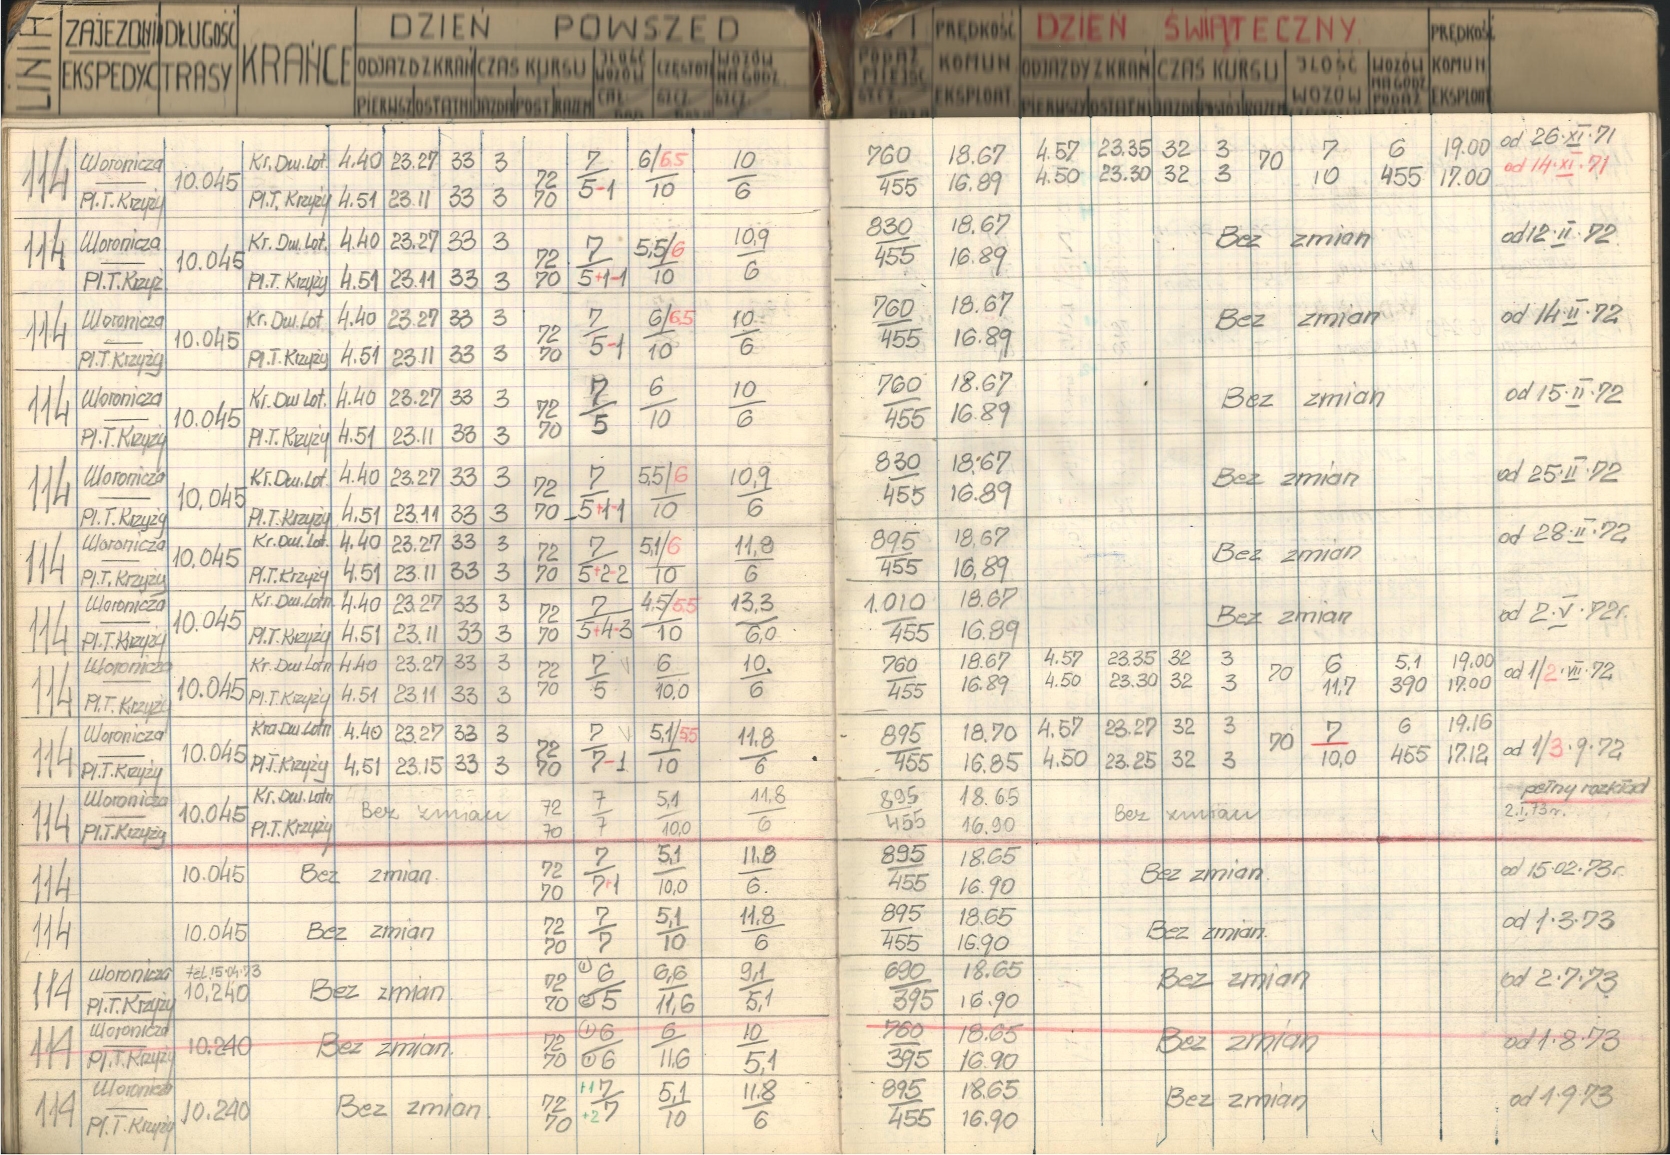 LINIA ZAJEZDNI EKSPEDYC DŁUGOŚĆ TRASY KRAŃCE DZIEŃ POWSZED
ODJAZD Z KRAŃ CZAS KURSU ILOŚĆ WOZÓW CZĘSTOT WOZÓW NA GODZ.
PIERWSZ OSTATNI JAZDA POST RAZEM
PODAŻ MIEJSC PRĘDKOŚĆ KOMUN EKSPLOAT. DZIEŃ ŚWIĄTECZNY PRĘDKOŚĆ KOMUN EKSPLOAT
ODJAZDY Z KRAŃ CZAS KURSU ILOŚĆ WOZÓW WOZÓW NA GODZ PODAŻ
PIERWSZY OSTATNI JAZDA POSTÓJ RAZEM
114 Woronicza 10.045 Kr. Dw. Lot. 4.40 23.27 33 3 72 7 6/6.5 10 760 18.67 4.57 23.35 32 3 70 7 6 19.00 od 26·XI·71
Pl.T. Krzyży Pl.T. Krzyży 4.51 23.11 33 3 70 5-1 10 6 455 16.89 4.50 23.30 32 3 10 455 17.00 od 14·XI·71
114 Woronicza 10.045 Kr. Dw. Lot. 4.40 23.27 33 3 72 7 5,5/6 10,9 830 18.67 Bez zmian od 12·II·72
Pl.T. Krzyż. Pl.T. Krzyży 4.51 23.11 33 3 70 5+1-1 10 6 455 16.89
114 Woronicza 10.045 Kr. Dw. Lot. 4.40 23.27 33 3 72 7 6/6.5 10 760 18.67 Bez zmian od 14·II·72
Pl.T. Krzyży Pl.T. Krzyży 4.51 23.11 33 3 70 5-1 10 6 455 16.89
114 Woronicza 10.045 Kr. Dw. Lot. 4.40 23.27 33 3 72 7 6 10 760 18.67 Bez zmian od 15·II·72
Pl.T. Krzyży Pl.T. Krzyży 4.51 23.11 33 3 70 5 10 6 455 16.89
114 Woronicza 10,045 Kr. Dw. Lot. 4.40 23.27 33 3 72 7 5,5/6 10,9 830 18.67 Bez zmian od 25·II·72
Pl.T. Krzyży Pl.T. Krzyży 4.51 23.11 33 3 70 5+1-1 10 6 455 16.89
114 Woronicza 10,045 Kr. Dw. Lot. 4.40 23.27 33 3 72 7 5,1/6 11,8 895 18,67 Bez zmian od 28·II·72
Pl.T. Krzyży Pl.T. Krzyży 4.51 23.11 33 3 70 5+2-2 10 6 455 16,89
114 Woronicza 10.045 Kr. Dw. Lotn 4.40 23.27 33 3 72 7 4,5/5.5 13,3 1.010 18.67 Bez zmian od 2·V·72r.
Pl.T. Krzyży Pl.T. Krzyży 4.51 23.11 33 3 70 5+4-3 10 6,0 455 16.89
114 Woronicza 10.045 Kr. Dw. Lotn 4.40 23.27 33 3 72 7 6 10. 760 18.67 4.57 23.35 32 3 70 6 5.1 19.00 od 1/2·VII·72
Pl.T. Krzyży Pl.T. Krzyży 4.51 23.11 33 3 70 5 10,0 6 455 16.89 4.50 23.30 32 3 11,7 390 17.00
114 Woronicza 10.045 Kra Dw. Lotn 4.40 23.27 33 3 72 7 5,1/5.5 11,8 895 18.70 4.57 23.27 32 3 70 7 6 19.16 od 1/3·9·72
Pl.T. Krzyży Pl.T. Krzyży 4.51 23.15 33 3 70 7-1 10 6 455 16.85 4.50 23.25 32 3 10,0 455 17.12
114 Woronicza 10.045 Kr. Dw. Lotn Bez zmian 72 7 5,1 11,8 895 18.65 Bez zmian pełny rozkład
Pl.T. Krzyży Pl.T. Krzyży 70 7 10,0 6 455 16.90 2.I.73r.
114 10.045 Bez zmian. 72 7 5,1 11.8 895 18.65 Bez zmian. od 15·02·73r.
70 7+1 10,0 6. 455 16.90
114 10.045 Bez zmian 72 7 5,1 11.8 895 18.65 Bez zmian. od 1·3·73
70 7 10 6 455 16.90
114 Woronicza tel. 15·04·73 10,240 Bez zmian 72 ① 6 6,6 9,1 690 18.65 Bez zmian od 2·7·73
Pl.T. Krzyży 70 ② 5 11,6 5,1 395 16.90
114 Woronicza 10.240 Bez zmian. 72 ① 6 6 10 760 18.65 Bez zmian od 1·8·73
Pl.T. Krzyży 70 ① 6 11.6 5,1 395 16.90
114 Woronicz 10.240 Bez zmian 72 +1 7 5,1 11.8 895 18.65 Bez zmian od 1 9 73
Pl.T. Krzyży 70 +2 7 10 6 455 16.90